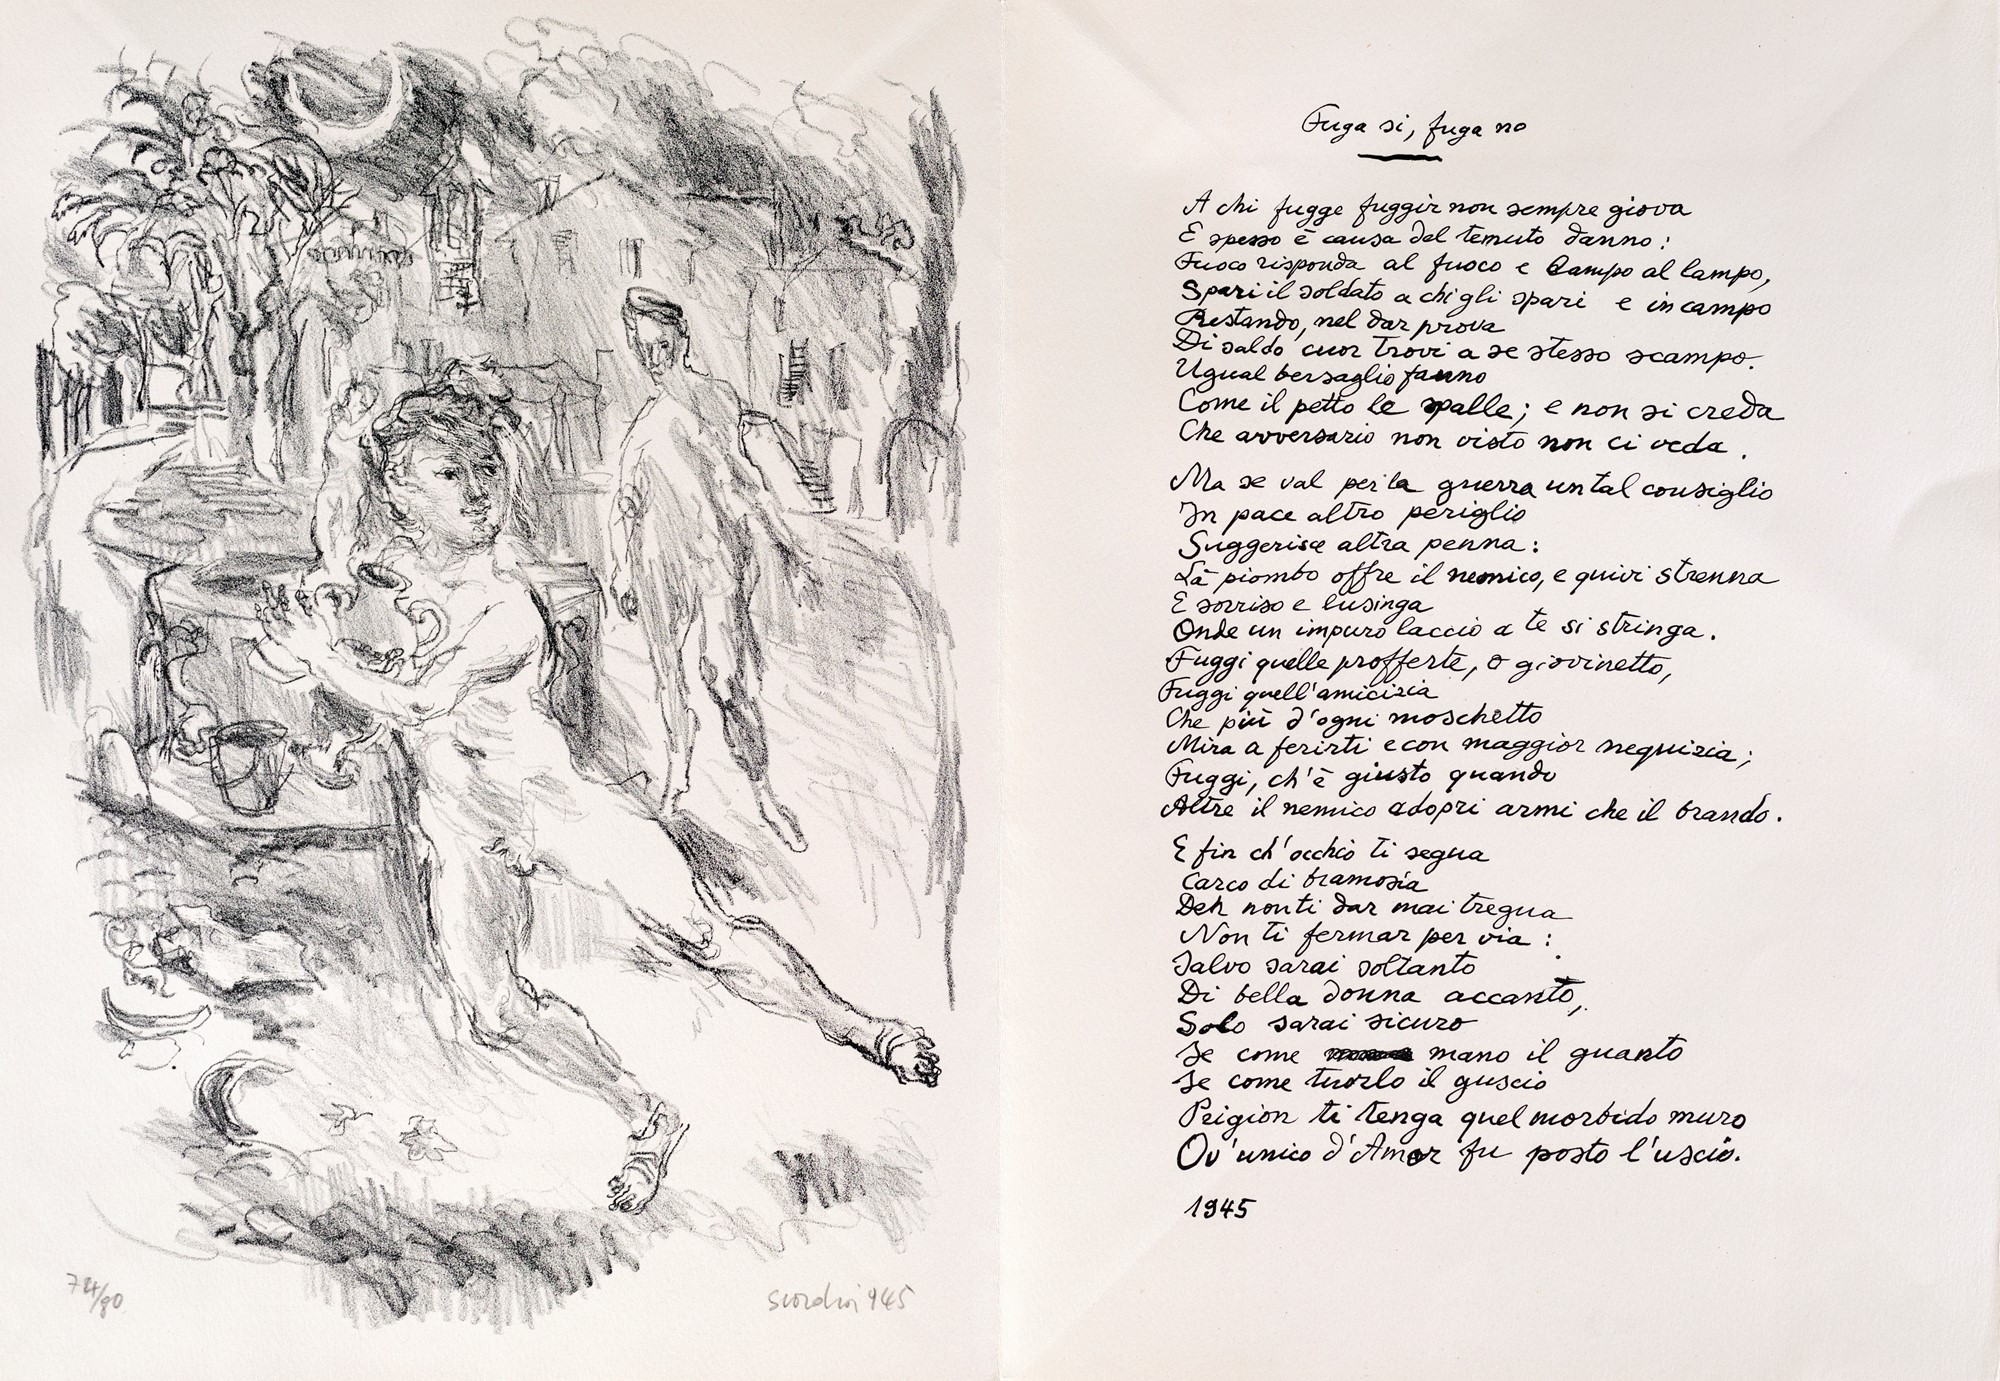 Fuga si, fuga no
A chi fugge fuggir non sempre giova
E spesso è causa del temuto danno:
Fuoco risponda al fuoco e lampo al lampo,
Spari il soldato a chi gli spari e in campo
Restando, nel dar prova
Di saldo cuor trovi a se stesso scampo.
Ugual bersaglio fanno
Come il petto le spalle; e non si creda
Che avversario non visto non ci veda.
Ma se val per la guerra un tal consiglio
In pace altro periglio
Suggerisce altra penna:
Là piombo offre il nemico, e quivi strenna
E sorriso e lusinga
Onde un impuro laccio a te si stringa.
Fuggi quelle profferte, o giovinetto,
Fuggi quell'amicizia
Che più d'ogni moschetto
Mira a ferirti e con maggior nequizia;
Fuggi, ch'è giusto quando
Altre il nemico adopri armi che il brando.
E fin ch'occhio ti segua
Carco di bramosia
Deh non ti dar mai tregua
Non ti fermar per via:
Salvo sarai soltanto
Di bella donna accanto,
Solo sarai sicuro
Se come mano il guanto
Se come tuorlo il guscio
Prigion ti tenga quel morbido muro
Ov'unico d'Amor fu posto l'uscio.
1945
74/80
945